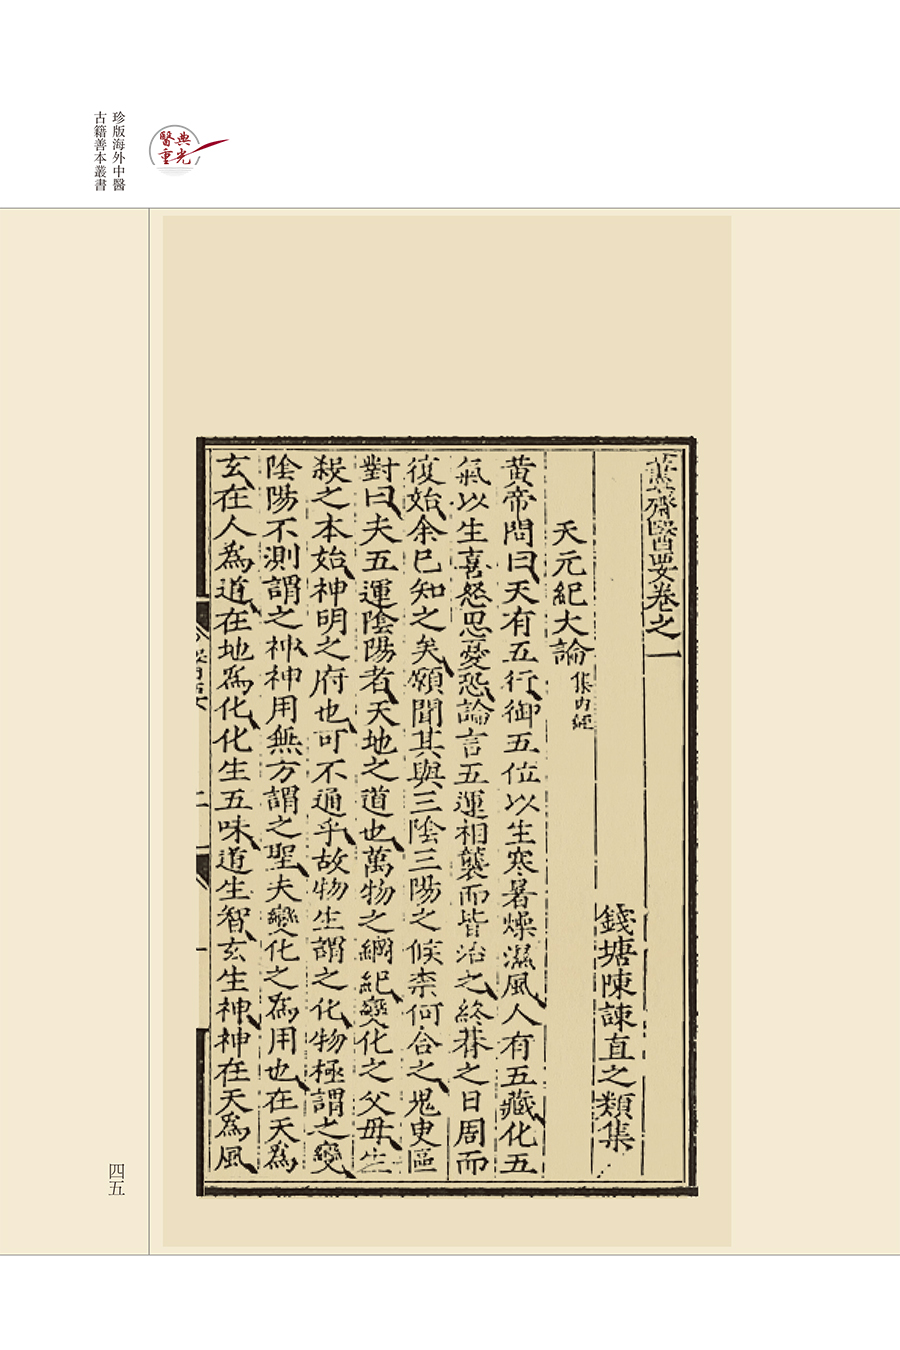 珍版海外中醫
古籍善本叢書
醫典
重光
藎齋醫要卷之一
錢塘陳諫直之類集
天元紀大論集內經
黃帝問曰天有五行御五位以生寒暑燥濕風人有五藏化五
氣以生喜怒思憂恐論言五運相襲而皆治之終朞之日周而
復始余已知之矣願聞其與三陰三陽之候柰何合之鬼臾區
對曰夫五運陰陽者天地之道也萬物之綱紀變化之父母生
殺之本始神明之府也可不通乎故物生謂之化物極謂之變
陰陽不測謂之神神用無方謂之聖夫變化之為用也在天為
玄在人為道在地為化化生五味道生智玄生神神在天為風
醫要
二
四五